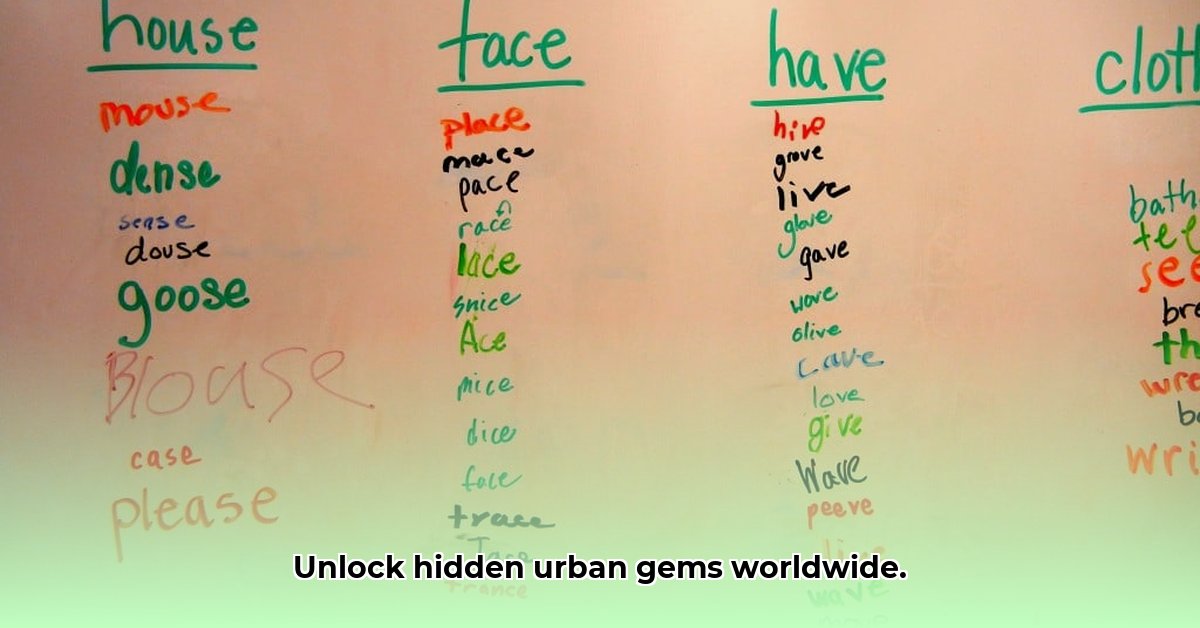 house
mouse
dense
sense
douse
goose
Blouse
case
please
face
place
mace
pace
race
lace
snice
Ace
mice
dice
face
trace
trance
have
hive
grove
live
glove
gave
wove
olive
cave
love
give
Wave
peeve
live
wave
cloth
bath
see
wri
Unlock hidden urban gems worldwide.